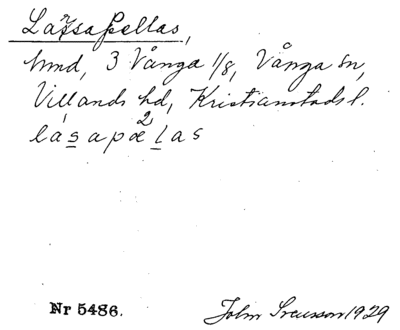 Låssapellas,
hmd, 3 Vånga 1/8, Vånga sn,
Villands hd, Kristianstads l.
låsapælas
Nr 5486.
John Svensson 1929